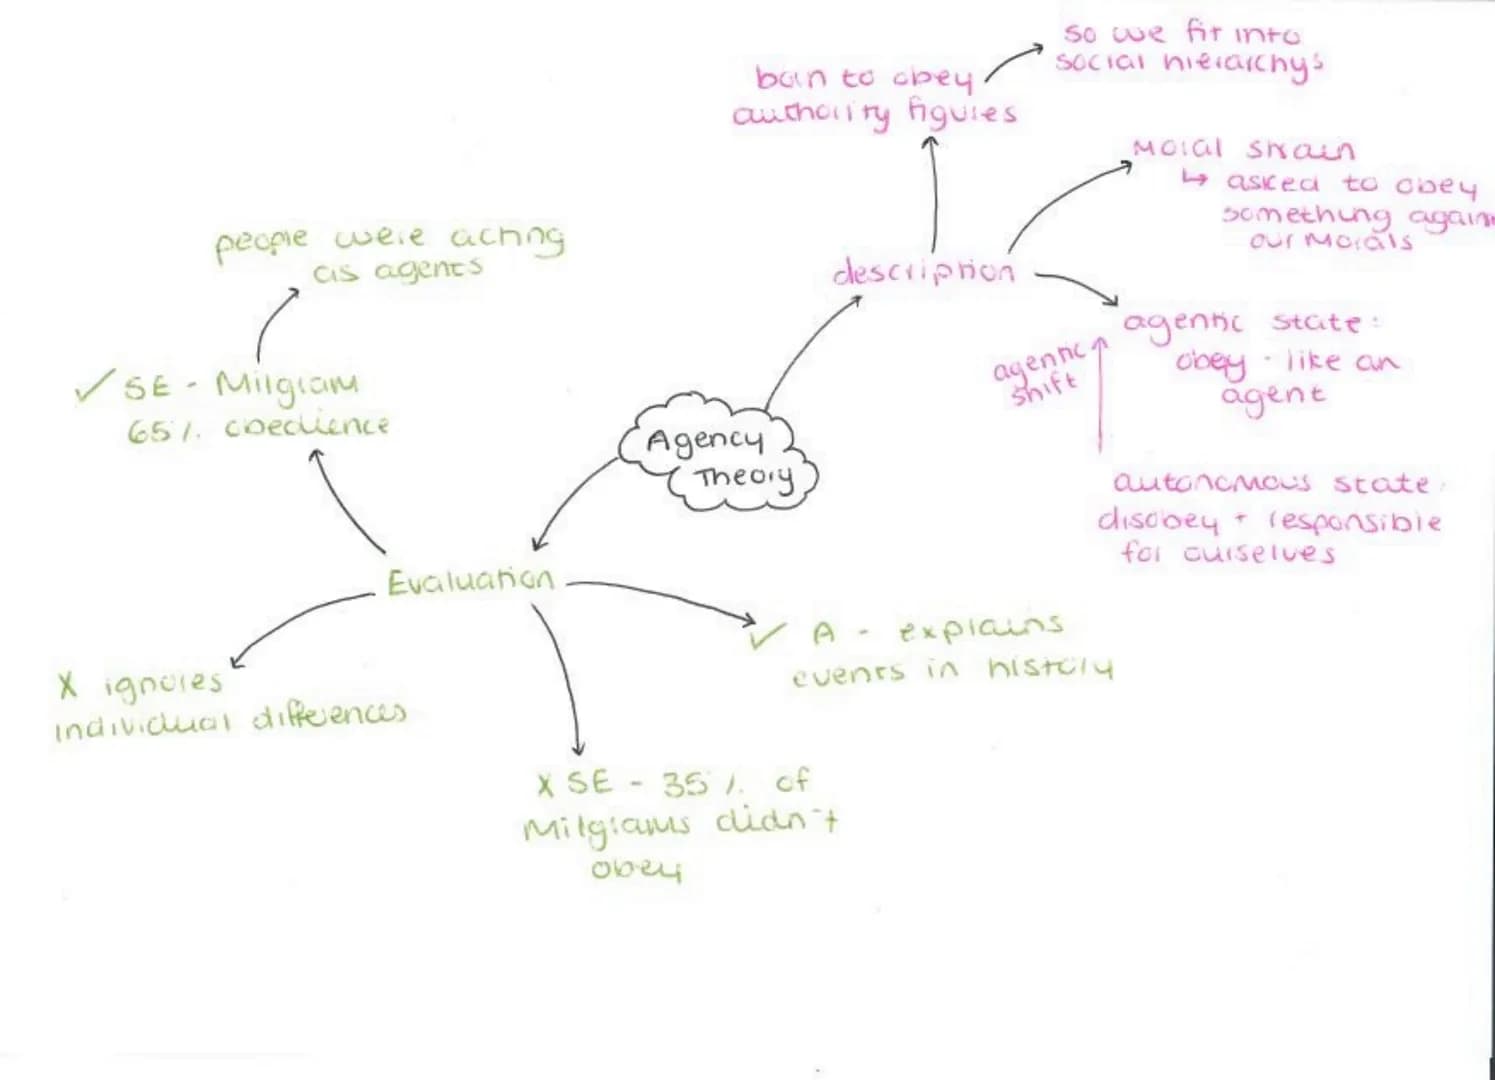 so we fit into
social hierarchys
born to obey
authority figures
Moral strain
↳ asked to obey
something again
our Morals
description
people were acting
as agents
agentic state:
obey - like an
agent
agentic
shift
✓ SE - Milgram
65%. obedience
Agency
Theory
autonomous state:
disobey + responsible
for ourselves
Evaluation
✓ A - explains
events in history
X ignores
individual differences
X SE - 35%. of
Milgrams didn't
obey